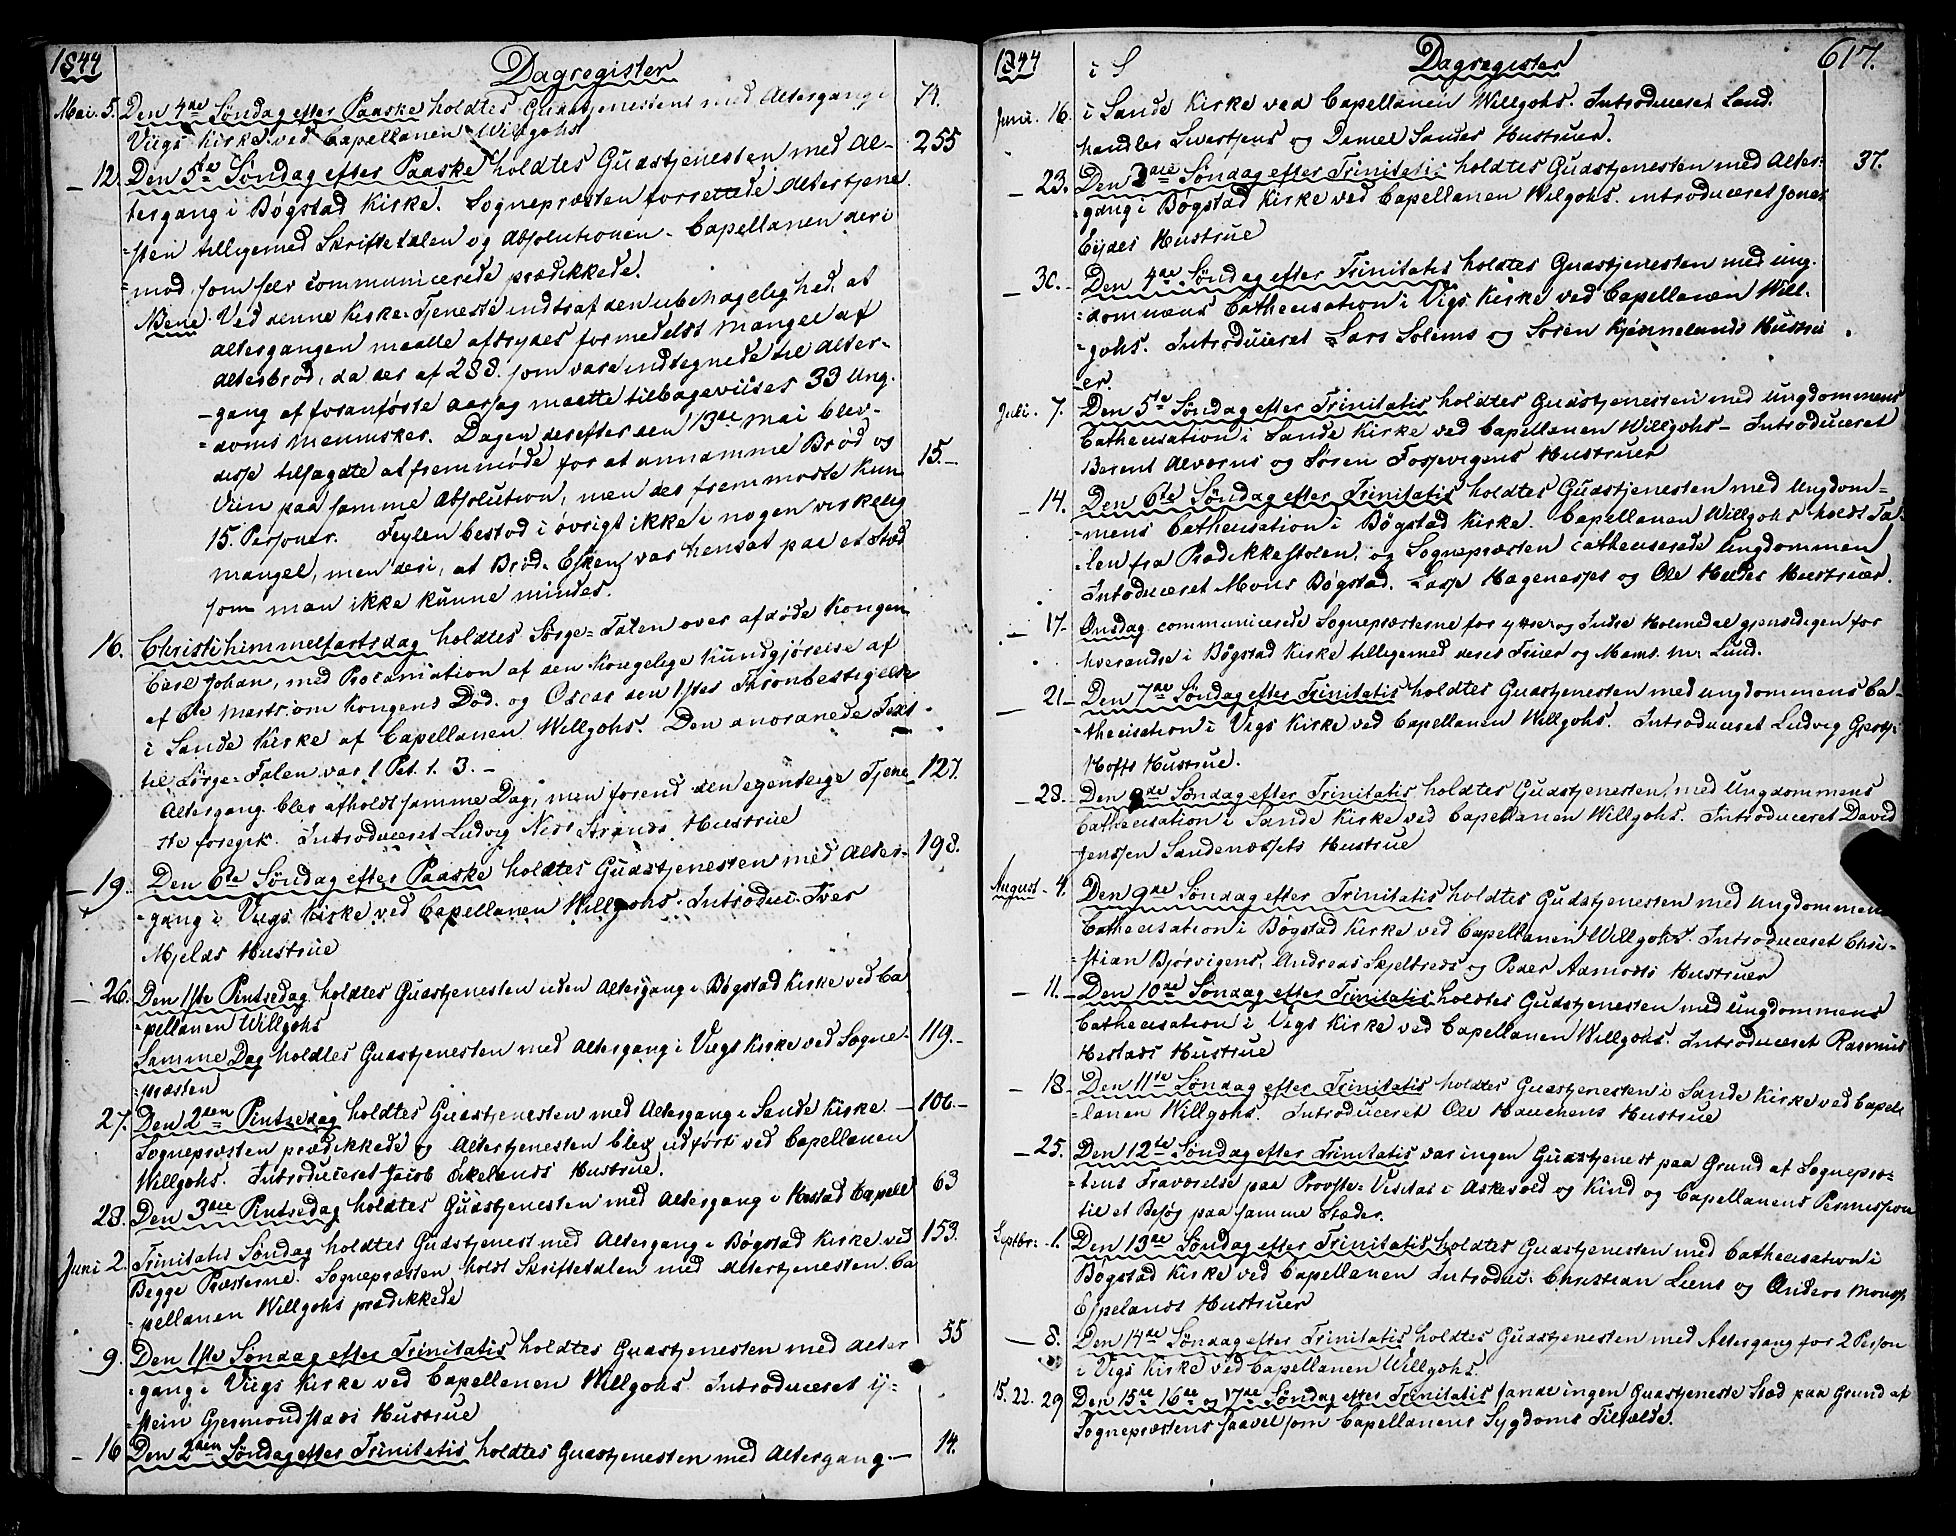 1844
Dagregister
Mai. 5. Den 4de Søndag efter Paaske holdtes Gudstjenesten med Altergang i 74.
Viigs Kirke ved Capellanen Willgohs
12. Den 5te Søndag efter Paaske holdtes Gudstjenesten med Al- 255
tergang i Bøgstad Kirke. Sognepræsten forrettede Altertjene
=sten tilligemed Skriftetalen og Absolutionen. Capellanen deri
=mod som selv communicerede prædikkede.
NBene. Ved denne Kirke-Tjeneste indtraf den ubehagelighed, at
altergangen maatte afbrydes formedelst Mangel af
alterbrød, da der af 288. som vare indtegnede til Alter-
-gang af foranførte aarsag maatte tilbageviises 33 Ung-
=doms Mennesker. Dagen derefter den 13de Mai blev
disse tilsagdte at fremmøde for at annamme Brød og 15.-
Viin paa samme Absolution, men der fremmødte kun
15 Personer. Fejlen bestod i øvrigt ikke i nogen virkelig
mangel, men deri, at Brød-Esken var hensat paa et Sted
som man ikke kunne mindes.
16. Christi himmelfartsdag holdtes Sørge-Talen over afdøde Kongen
Carl Johan, med Proclamation af den Kongelige Kundgjørelse af
af 8de Marts om Kongens Død. og Oscar den 1stes Thronbestigelse
i Sande Kirke af Capellanen Willgohs. Den anordnede Text
til Sørge-Talen var 1 Pet. 1. 3. -
Altergang blev afholdt samme Dag, men forend den egentlige Tjene 127.
ste foregik. Introduceret Ludvig Nedr Strands Hustrue
19. Den 6te Søndag efter Paaske holdtes Gudstjenesten med Alter- 198.
=gang i Viigs Kirke ved Capellanen Willgohs. Introduc: Iver
Mjelds Hustrue
26. Den 1ste Pintsedag holdtes Gudstjenesten uden Altergang i Bøgstad Kirke ved Ca
=pellanen Willgohs
Samme Dag holdtes Gudstjenesten med Altergang i Viigs Kirke ved Sogne- 119.-
=præsten
27. Den 2den Pintsedag holdtes Gudstjenesten med Altergang i Sande Kirke. - 106.-
Sognepræsten prædikkede og Altertjenesten blev udført ved Capellanen
Willgohs. Introduceret Jacob Eikelands Hustrue.
28. Den 3die Pintsedag holdtes Gudstjenesten med Altergang i Hestad Capell 63
Juni 2. Trinitatis Søndag holdtes Gudstjenest med Altergang i Bøgstad Kirke ved 153.
Begge Præsterne. Sognepræsten holdt Skriftetalen med Altertjenesten. Ca
pellanen Willgohs prædikkede
9. Den 1ste Søndag efter Trinitatis holdtes Gudstjenesten med Alter 55
=gang i Viigs Kirke ved Capellanen Willgohs. Introduceret Ÿ=
=stein Gjermondstads Hustrue
- 16 Den 2den Søndag efter Trinitatis holdtes Gudstjenesten med Altergang. - 14.
1844
i S
Dagregister
617.
Juni. 16. i Sande Kirke ved Capellanen Willgohs. Introduceret Land-
handler Sivertsens og Daniel Sandes Hustruer.
- 23. Den 3die Søndag efter Trinitatis holdtes Gudstjenesten med Alter- 37.
=gang i Bøgstad Kirke ved Capellanen Wilgohs. introduceret Jones
Eides Hustrue
- 30. Den 4de Søndag efter Trinitatis holdtes Gudstjenesten med ung-
=dommens Cathecisation i Vigs Kirke ved Capellanen Will-
=gohs. Introduceret Lars Solems og Søren Kjønnelands Hustru
er.
Juli. 7. Den 5te Søndag efter Trinitatis holdtes Gudstjenesten med Ungdommens
Cathecisation i Sande Kirke ved Capellanen Willgohs - Introduceret
Berent Alværns og Søren Fossevigens Hustruer
- 14. Den 6te Søndag efter Trinitatis holdtes Gudstjenesten med Ungdom-
=mens Cathecisation i Bøgstad Kirke. Capellanen Willgohs holdt Ta-
=len fra Prædikkestolen, og Sognepræsten catheciserede Ungdommen
Introduceret Mons Bøgstad. Lasse Hagenæsses og Ole Heldes Hustruer.
- 17. Onsdag communicerede Sognepræsterne for yttre og Indre Holmedal gjensidigen for
hverandre i Bøgstad Kirke tilligemed deres Fruer og Mams. M. Lund.
- 21. Den 7de Søndag efter Trinitatis holdtes Gudstjenesten med Ungdommens Ca-
=thecisation i Vigs Kirke ved Capellanen Willgohs. Introduceret Ludvig Gjerts-
Hofts Hustrue.
- 28. Den 8de Søndag efter Trinitatis holdtes Gudstjenesten med Ungdommens
Cathecisation i Sande Kirke ved Capellanen Willgohs. Introduceret David
Jenssen Sandenæssets Hustrue
August. 4. Den 9de Søndag efter Trinitatis holdtes Gudstjenesten med Ungdommens
Cathecisation i Bøgstad Kirke ved Capellanen Willgohs. Introduceret Chri-
=stian Bjørvigens, Andreas Skjeltreds og Peder Aamodts Hustruer
- 11. Den 10de Søndag efter Trinitatis holdtes Gudstjenesten med Ungdommens
Cathecisation i Vigs Kirke ved Capellanen Willgohs. Introduceret Rasmus
Hestads Hustrue
- 18. Den 11te Søndag efter Trinitatis holdtes Gudstjenesten i Sande Kirke ved Capel-
=lanen Willgohs. Introduceret Ole Hauchens Hustrue
- 25. Den 12te Søndag efter Trinitatis var ingen Gudstjenest paa Grund af Sognepræ-
=stens Fraværelse paa Provste-Visitas i Askevold og Kind og Capellanens Permission
til et Besøg paa samme Stæder.
Septbr: 1. Den 13de Søndag efter Trinitatis holdtes Gudstjenesten med Cathecisation i
Bøgstad Kirke ved Capellanen Introduc: Christian Liens og Anders Monss.
Espelands Hustruer
- 8. Den 14de Søndag efter Trinitatis holdtes Gudstjenesten med Altergang for 2 Person
i Vigs Kirke ved Capellanen Willgohs.
15. 22. 29 Den 15de 16de og 17de Søndag efter Trinitatis fandt ingen Gudstjeneste Sted paa Grund af
Sognepræstens saavelsom Capellanens Sygdoms Tilfælde.